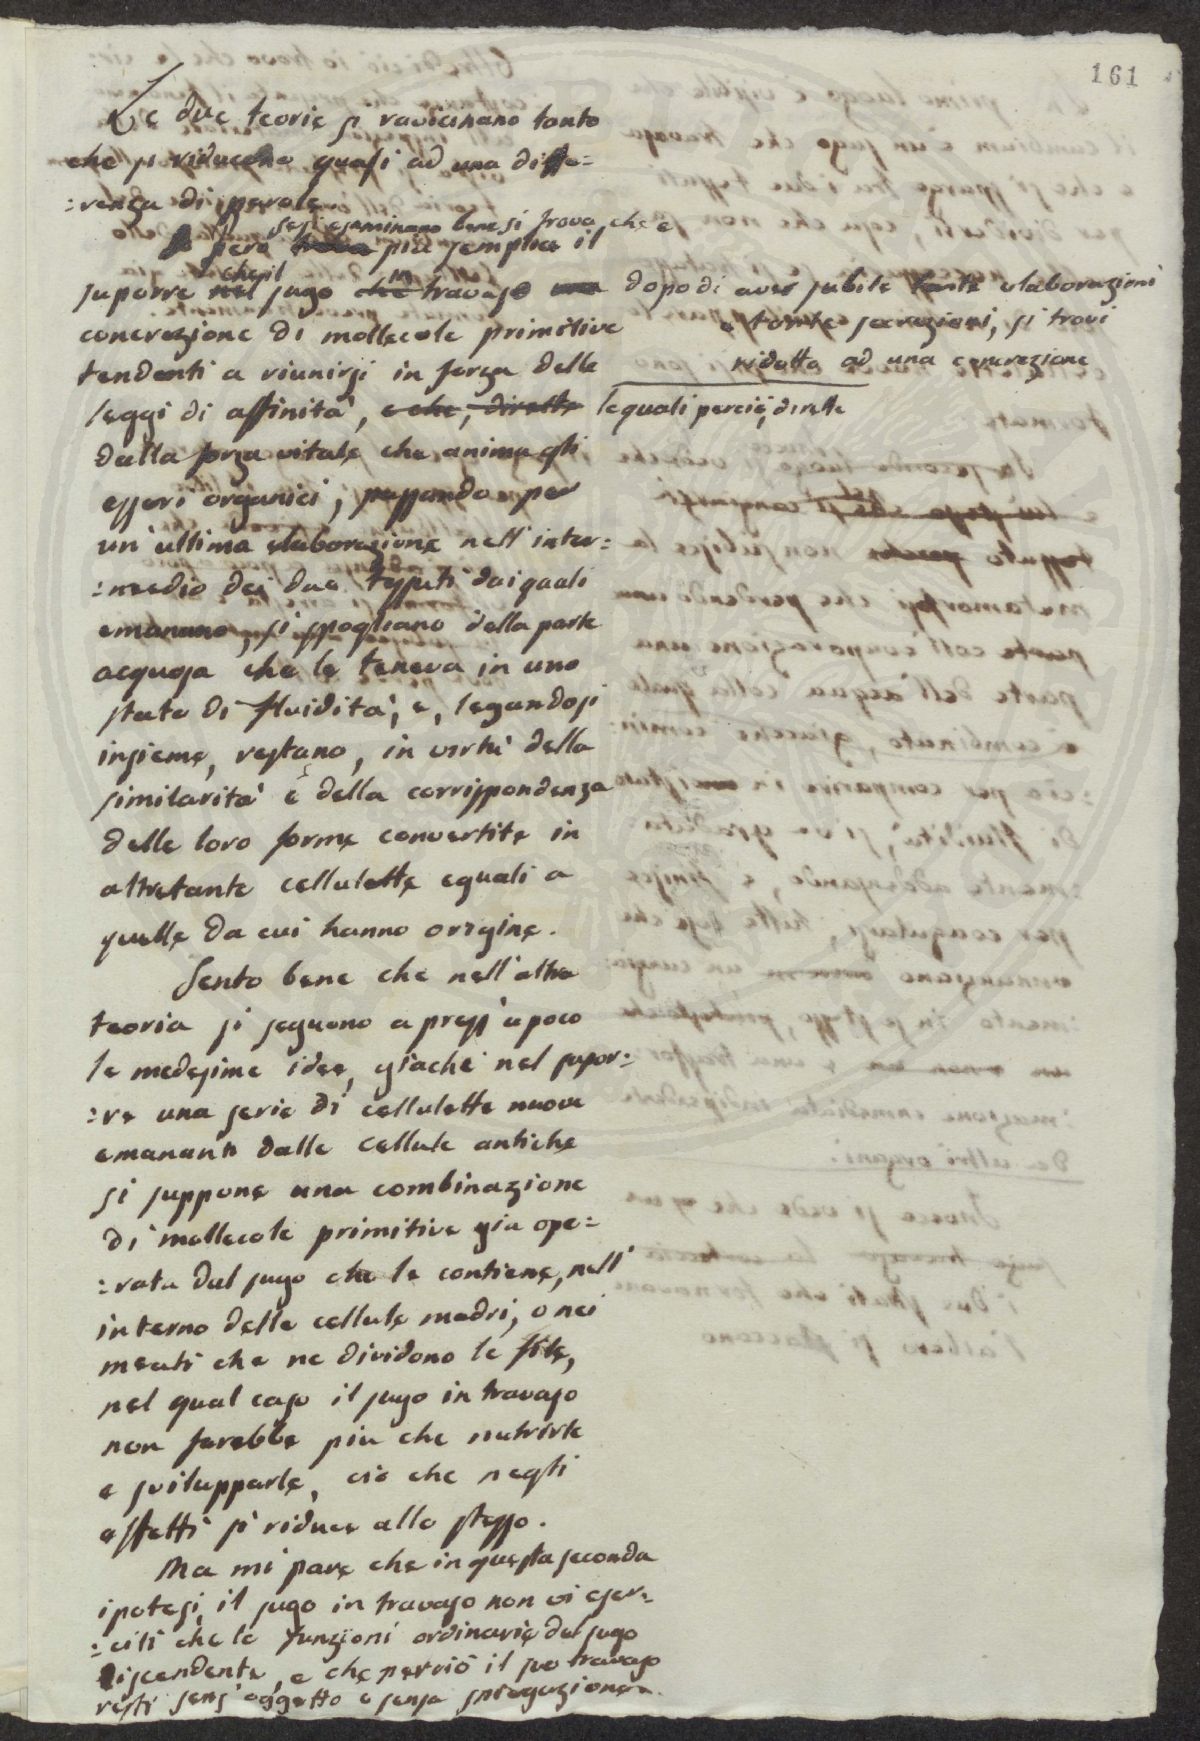 161
Le due teorie si ravicinano tanto
che si riducono quasi ad una diffe=
=renza di parole.
se si esaminano bene si trova che e
però più semplice il
suporre che il sugo in travaso dopo di aver subite tante elaborazioni
e tante secrezioni, si trovi
ridotto ad una concrezione
concrezione di mollecole primitive
tendenti a riunirsi in forza delle
leggi di affinità, e che, dirette le quali perciò, dirette
dalla forza vitale che anima gli
esseri organici, passando per
un'ultima elaborazione nell'inter=
=medio dei due tessuti dai quali
emanano, si spogliano della parte
acquosa che le teneva in uno
stato di fluidità, e, legandosi
insieme, restano, in virtù della
similarità e della corrispondenza
delle loro forme convertite in
altretante cellulette eguali a
quelle da cui hanno origine.
Sento bene che nell'altra
teoria si seguono a press'a poco
le medesime idee, giachè nel supor=
=re una serie di cellulette nuove
emananti dalle cellule antiche
si suppone una combinazione
di mollecole primitive gia ope=
=rata dal sugo che le contiene, nell'
interno delle cellule madri, o nei
meati che ne dividono le file,
nel qual caso il sugo in travaso
non farebbe piu che nutrirle
e svilupparle, ciò che negli
effetti si riduce allo stesso.
Ma mi pare che in questa seconda
ipotesi, il sugo in travaso non vi eser=
=citi che le funzioni ordinarie del sugo
discendente, e che perciò il suo travaso
resti senz'oggetto e senza spiegazione.